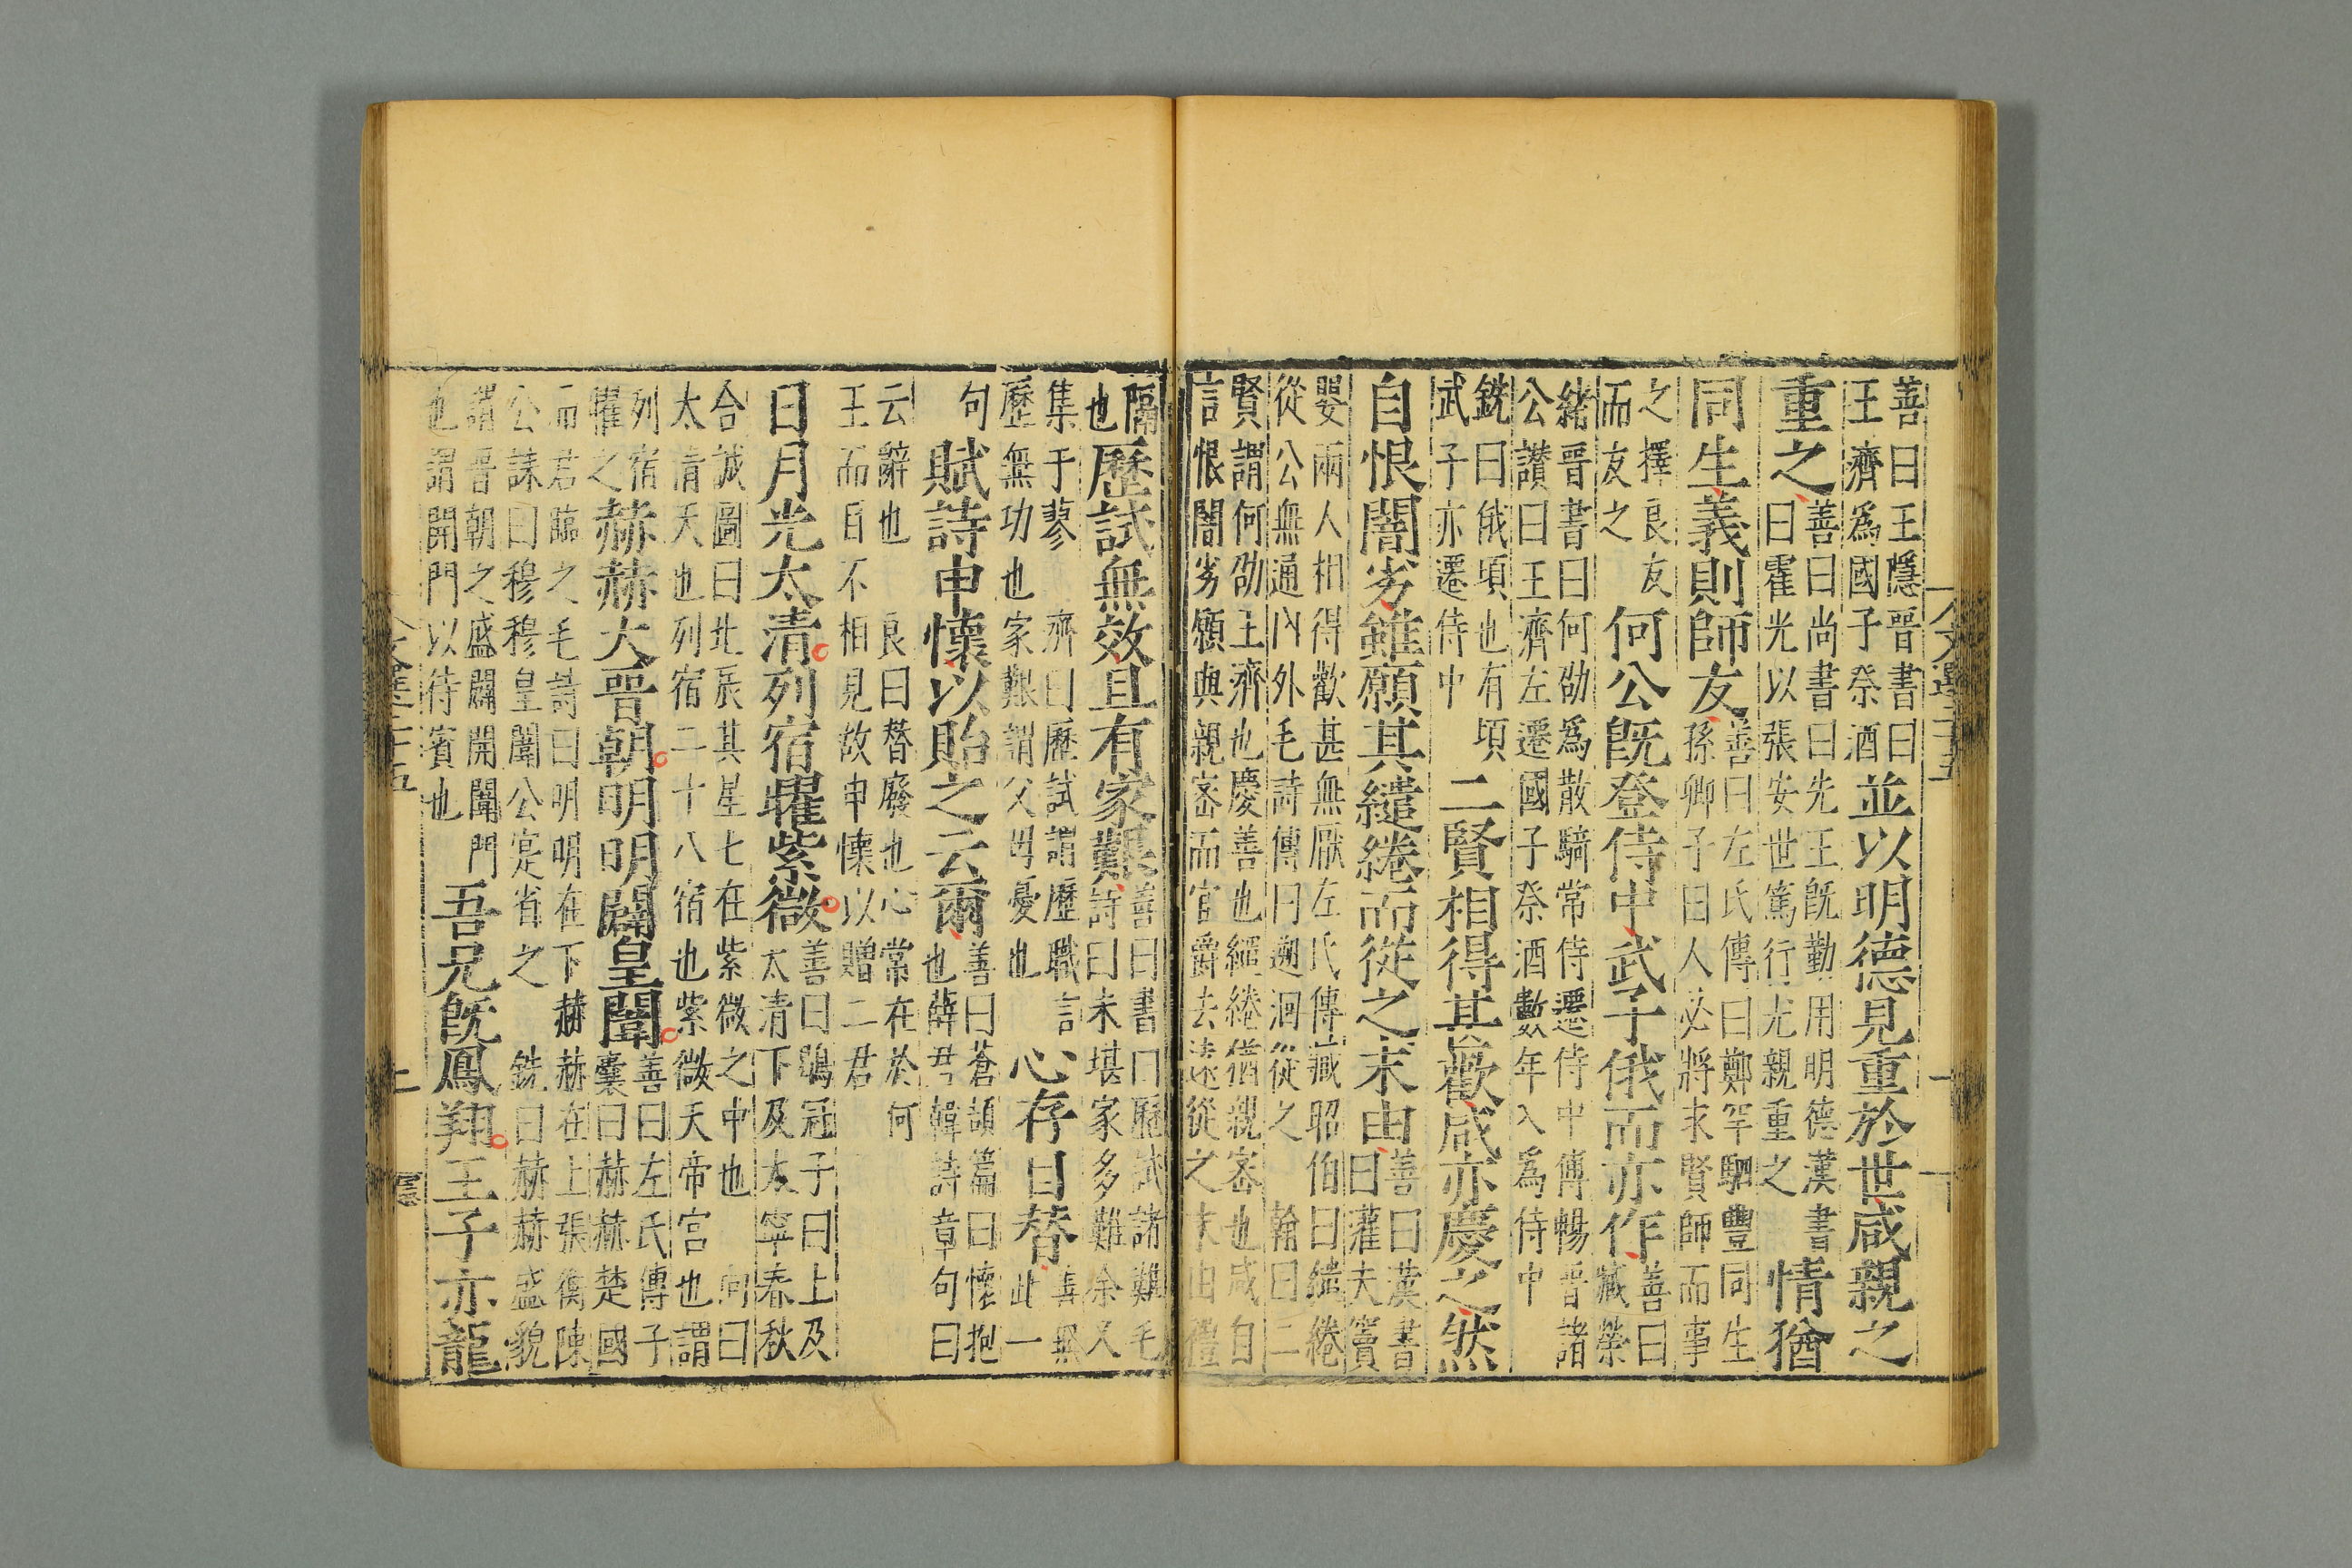 善曰王隱晉書曰
王濟爲國子祭酒
並以明德見重於世咸親之
重之
善曰尚書曰先王旣勤用明德漢書
曰霍光以張安世篤行光親重之
情猶
同生義則師友
善曰左氏傳曰鄭罕駟豐同生
孫卿子曰人必將求賢師而事
之擇良友
而友之
何公旣登侍中武子俄而亦作
善曰
臧榮
緒晉書曰何劭爲散騎常侍遷侍中傅暢晉諸
公讃曰王濟左遷國子祭酒數年入爲侍中
銑曰俄頃也有頃
武子亦遷侍中
二賢相得甚歡咸亦慶之然
自恨闇劣雖願其繾綣而從之末由
善曰漢書
曰灌夫竇
嬰兩人相得歡甚無厭左氏傳臧昭伯曰繾綣
從公無通內外毛詩傳曰遡洄從之 翰曰二
賢謂何劭王濟也慶善也繾綣猶親密也咸自
言恨闇劣願與親密而官爵去遠從之末由禮
隔
也
歷試無效且有家艱
善曰書曰歷試諸難毛
詩曰未堪家多難余又
集于蓼 濟曰歷試謂歷職言
歷無功也家艱謂父母憂也
心存目替
善無
此一
句
賦詩申懷以貽之云爾
善曰蒼頡篇曰懷抱
也薛君韓詩章句曰
云辭也 良曰替廢也心常在於何
王而目不相見故申懷以贈二君
日月光太清列宿曜紫微
善曰鶡冠子曰上及
太清下及太寧春秋
合誠圖曰北辰其星七在紫微之中也 向曰
太清天也列宿二十八宿也紫微天帝宮也謂
列宿
曜之
赫赫大晉朝明明闢皇闈
善曰左氏傳子
囊曰赫赫楚國
而君臨之毛詩曰明明在下赫赫在上張衡陳
公誄曰穆穆皇闈公寔省之 銑曰赫赫盛貌
謂晉朝之盛闢開闈門
也謂開門以待賓也
吾兄旣鳳翔王子亦龍